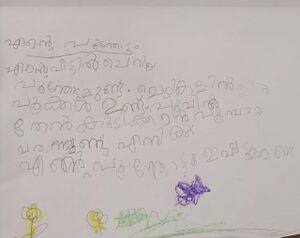 എന്റെ പൂന്തോട്ടം
എന്റെ വീട്ടിൽ ചെറിയ
പൂന്തോട്ടമുണ്ട്. ചെടികളിൽ
പൂക്കൾ ഉണ്ട്. പൂവിലെ
തേൻ കുടിക്കാൻ പൂമ്പാറ്റ
വരുന്നുണ്ട് എനിക്ക്
എന്റെ പൂന്തോട്ടം ഇഷ്ടമാണ്